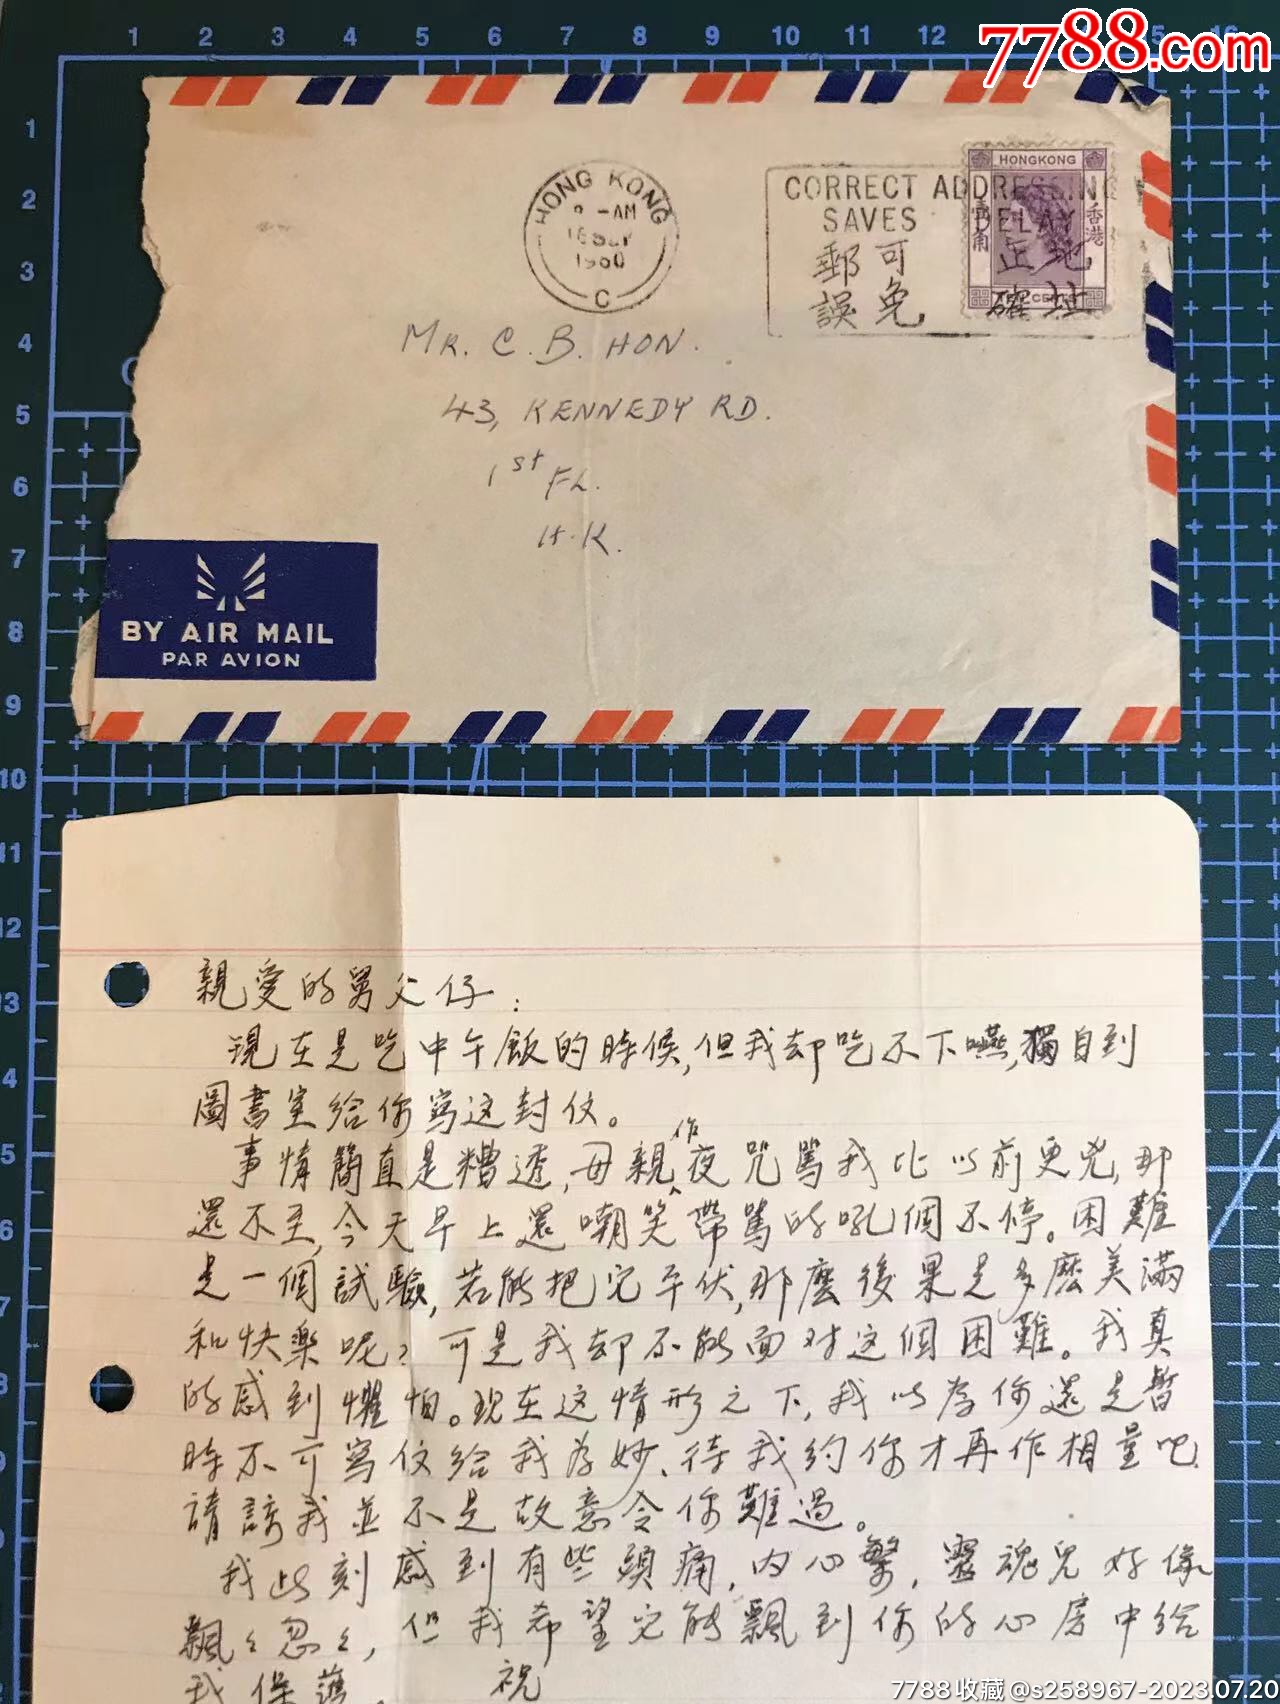 1 2 3 4 5 6 7 8 9 10 11 12 13 15 16
7788.com
1
2
3
4
5
6
7
8
9
10
11
12
13
HONG KONG
-AM
1960
C
CORRECT ADDRESSING
SAVES DELAY
郵可 正地
誤免 確址
HONGKONG
香港
TEN CENTS
MR. C. B. HON.
43, KENNEDY RD.
1st FL.
H.K.
BY AIR MAIL
PAR AVION
親愛的舅父仔:
現在是吃中午飯的時候,但我却吃不下嚥,獨自到
圖書室給你寫这封伩。
事情簡直是糟透,母親昨夜咒駡我比以前更兇,那
還不至,今天早上還嘲笑帶駡的吼個不停。困難
是一個試驗,若能把它平伏,那麽後果是多麽美滿
和快樂呢?可是我却不能面对这個困難。我真
的感到懼怕。现在这情形之下,我以为你還是暫
時不可寫伩給我为妙、待我約你才再作相量吧.
請 我並不是故意令你難過。
我此刻感到有些頭痛,内心繁,靈魂兒好像
飄々忽々,但我希望它能飄到你的心房中給
我保護. 祝
7788收藏@s258967-2023.07.20